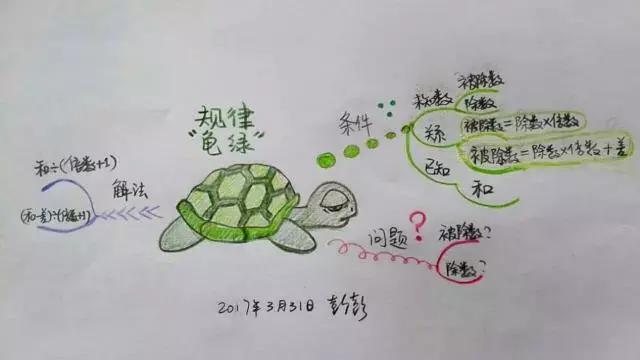 规律
“龟绿”
条件
找数
被除数
除数
关系
被除数=除数×倍数
被除数=除数×倍数+差
已知
和
解法
和÷(倍数+1)
(和-差)÷(倍数+1)
问题?
被除数?
除数?
2017年3月31日 彭彭